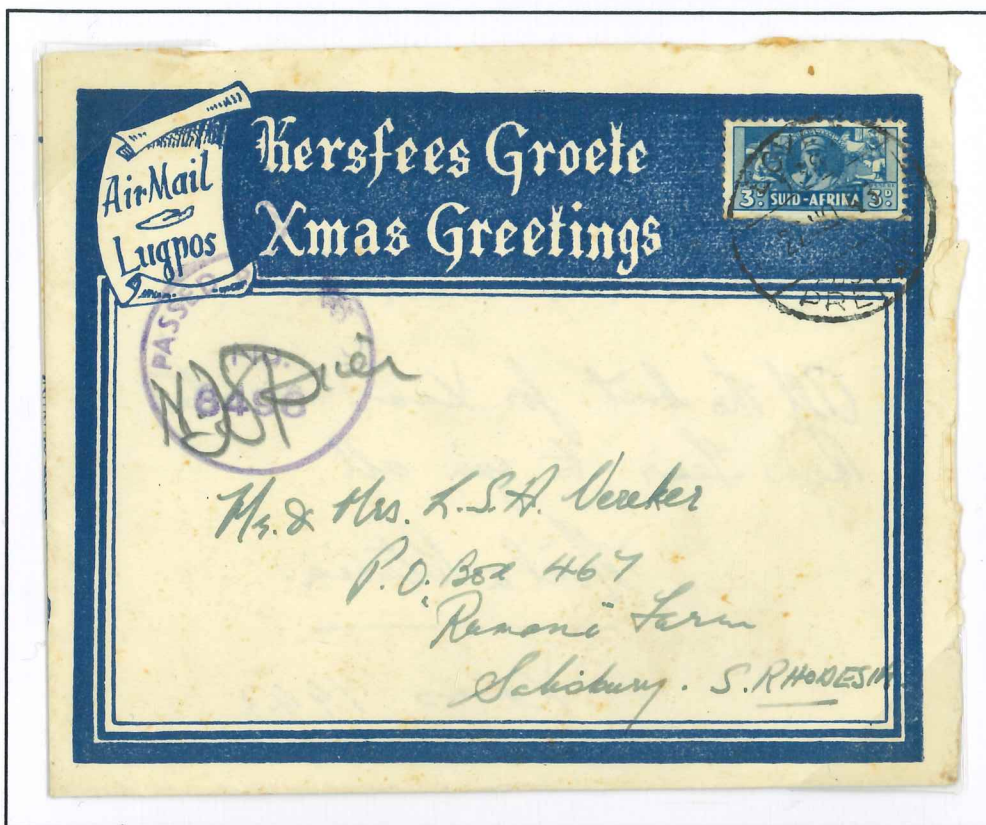 AirMail
Lugpos
Kersfees Groete
Xmas Greetings
3D SUID-AFRIKA 3D
PASSED
NO.
8496
Mr. & Mrs. L.S.A. Vereker
P.O. Box 467
Farm
Salisbury. S. RHODESIA